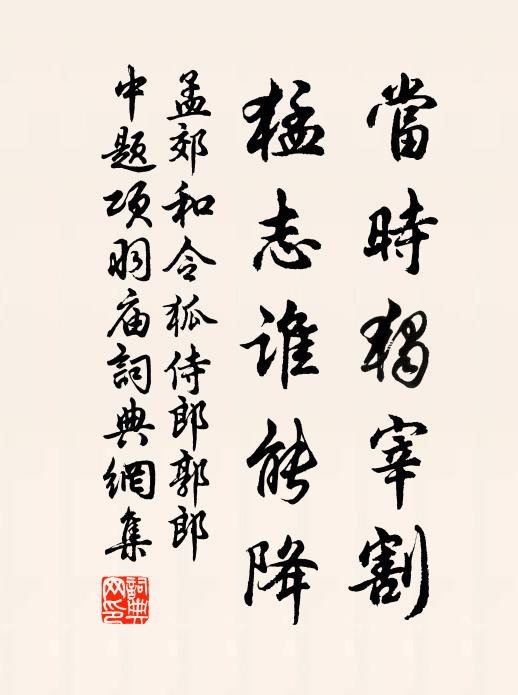 當時獨宰割
猛志誰能降
孟郊和令狐侍郎郭郎
中題项羽庙詞典網集
詞典
网印